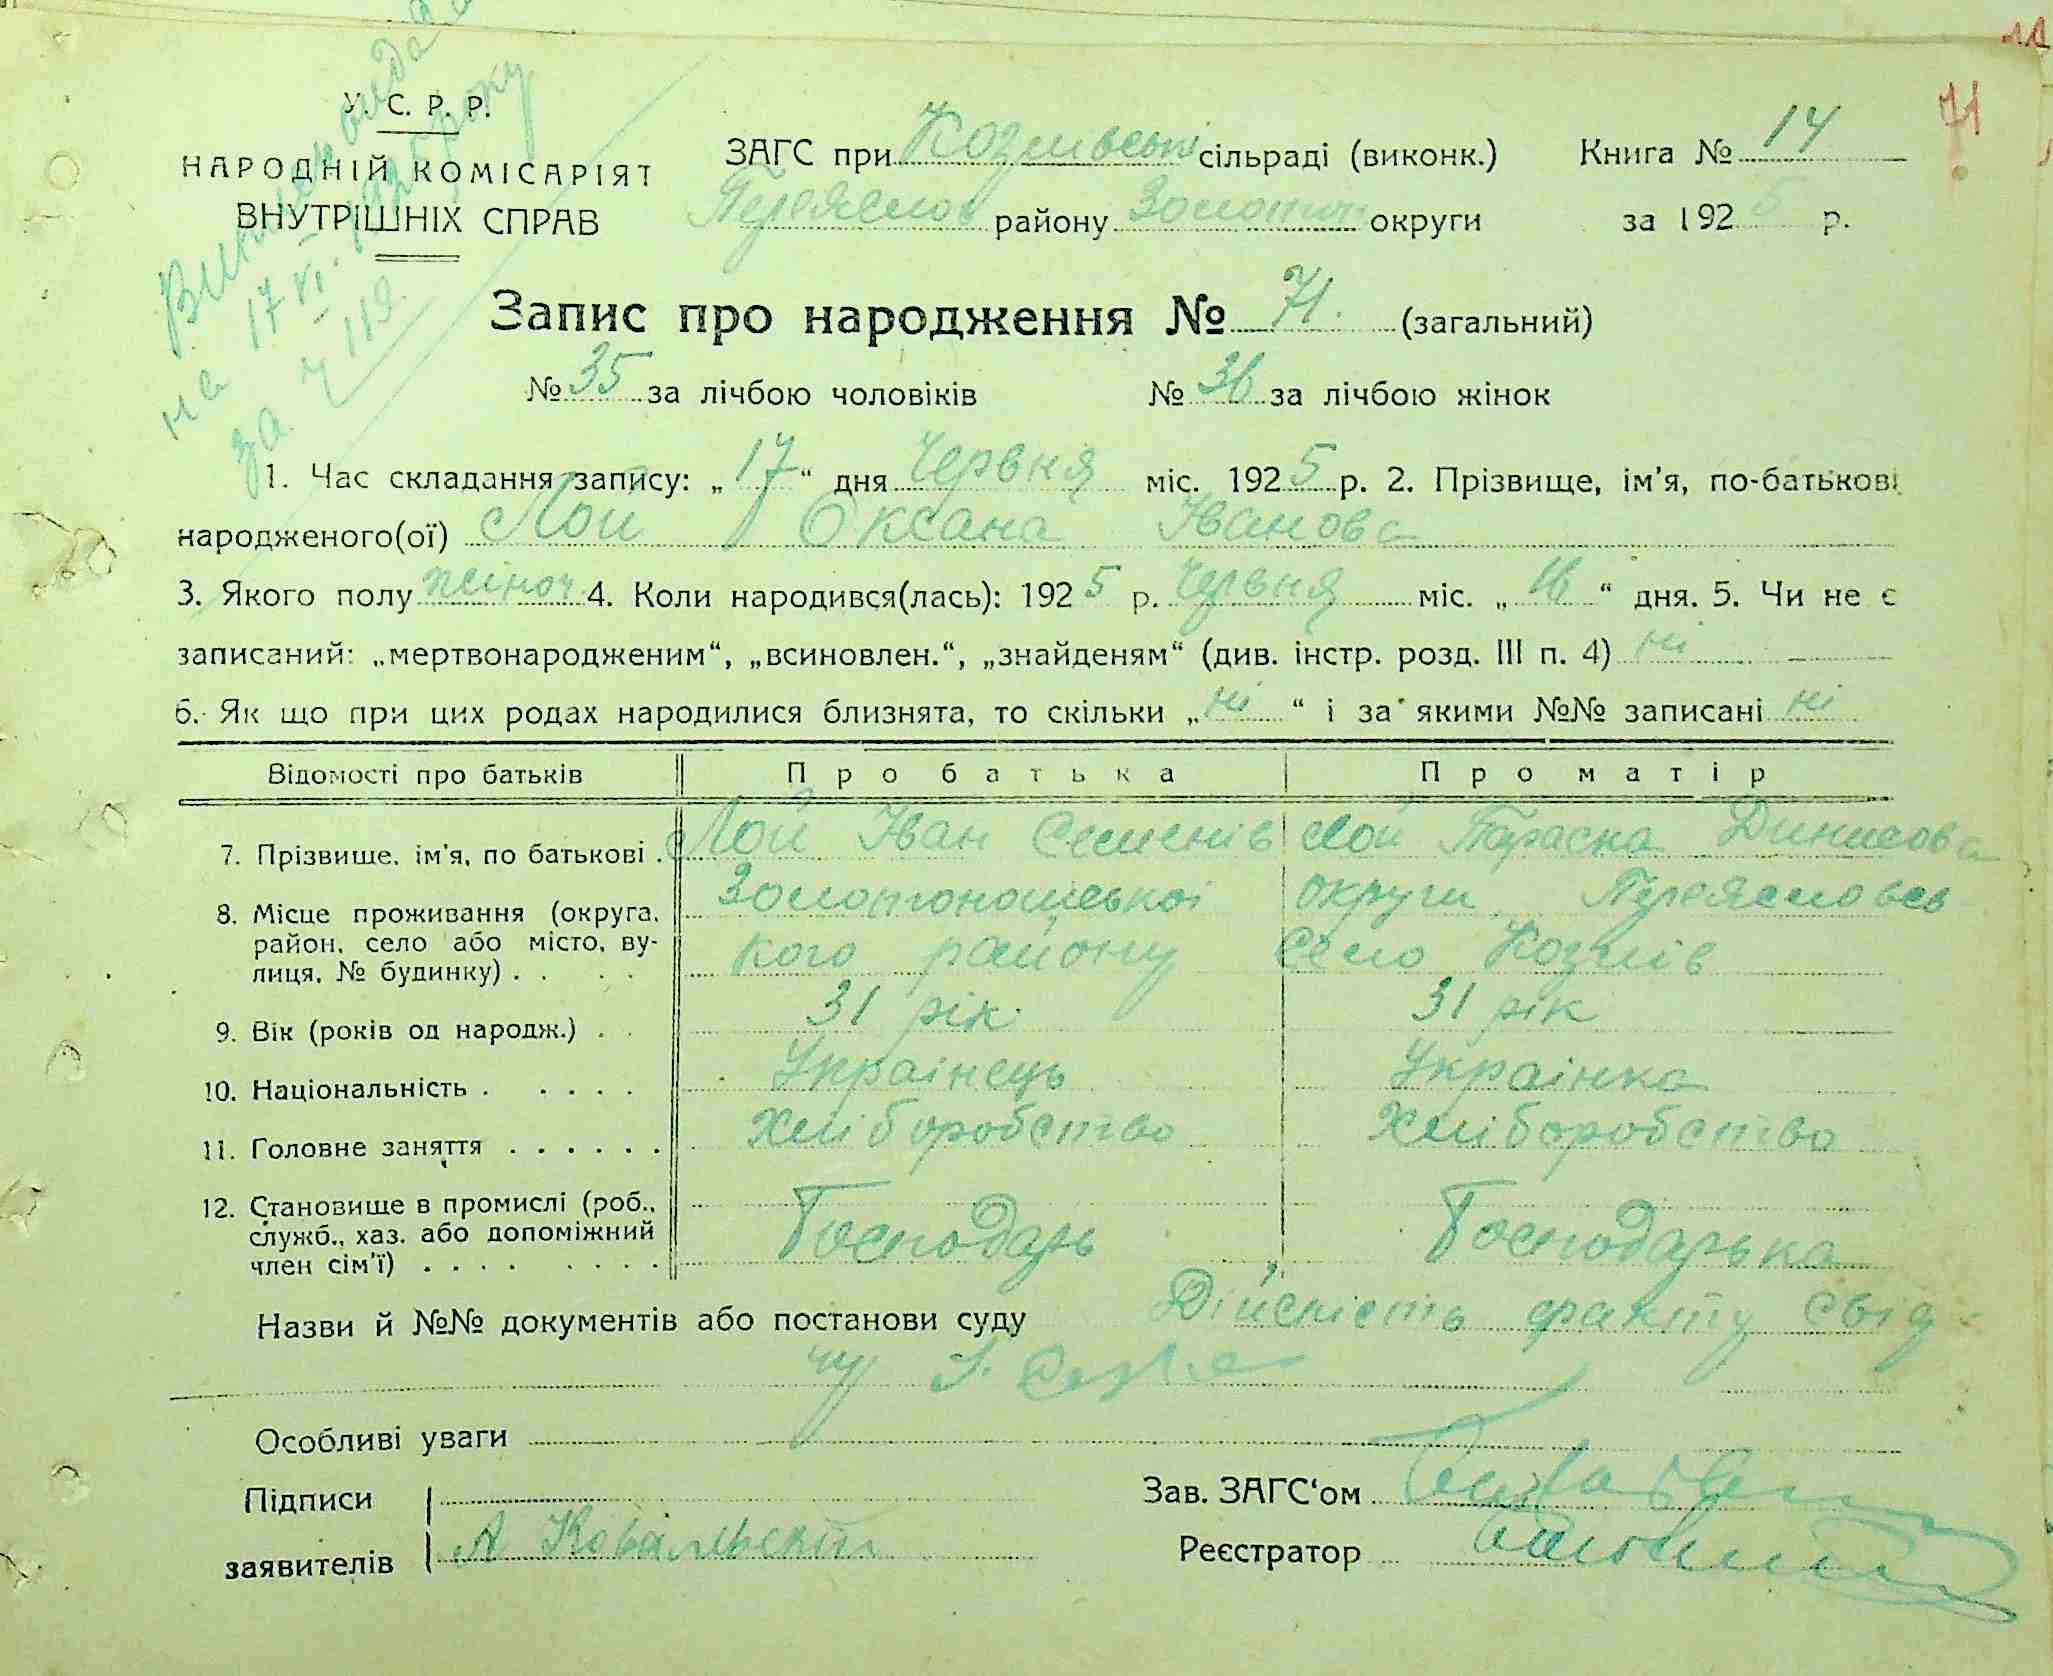 71
У. С. Р. Р.
НАРОДНІЙ КОМІСАРІЯТ
ВНУТРІШНІХ СПРАВ
на 17 VI
за ч 119
ЗАГС при Козлівські сільраді (виконк.) Книга № 14
Переяслов району Золотон округи за 1925 р.
Запис про народження № 71. (загальний)
№ 35 за лічбою чоловіків № 36 за лічбою жінок
1. Час складання запису: „17“ дня Червня міс. 1925 р. 2. Прізвище, ім'я, по-батькові
народженого(ої) Лой Оксана Іванова
3. Якого полу жіноч 4. Коли народився(лась): 1925 р. Червня міс. „16“ дня. 5. Чи не є
записаний: „мертвонародженим“, „всиновлен.“, „знайденям“ (див. інстр. розд. III п. 4) ні
6. Як що при цих родах народилися близнята, то скільки „ні“ і за якими №№ записані ні
Відомості про батьків Про батька Про матір
7. Прізвище, ім'я, по батькові . Лой Іван Семенів Лой Параска Динисова
8. Місце проживання (округа, Золотоношської округи Переясловсь
район, село або місто, ву- кого району Село Козлів
лиця, № будинку) . . . .
9. Вік (років од народж.) . . 31 рік 31 рік
10. Національність . . . . . Українець Українка
11. Головне заняття . . . . . . Хліборобство Хліборобство
12. Становище в промислі (роб.,
служб., хаз. або допоміжний Господарь Господарька
член сім'ї) . . . . . . . .
Назви й №№ документів або постанови суду Дійсність факту свід
чу
Особливі уваги
Підписи Зав. ЗАГС'ом
заявителів А Ковальскій Реєстратор